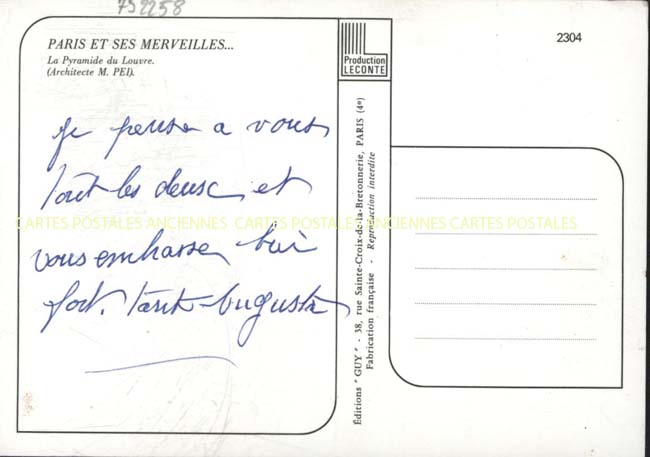 752258
PARIS ET SES MERVEILLES...
La Pyramide du Louvre.
(Architecte M. PEI).
Je pense a vous
tout les deux, et
vous embrasse bien
fort. Tante Augusta
Production
LECONTE
2304
Editions "GUY" - 38, rue Sainte-Croix-de-la-Bretonnerie, PARIS (4e)
Fabrication française - Reproduction interdite
CARTES POSTALES ANCIENNES CARTES POSTALES ANCIENNES CARTES POSTALES